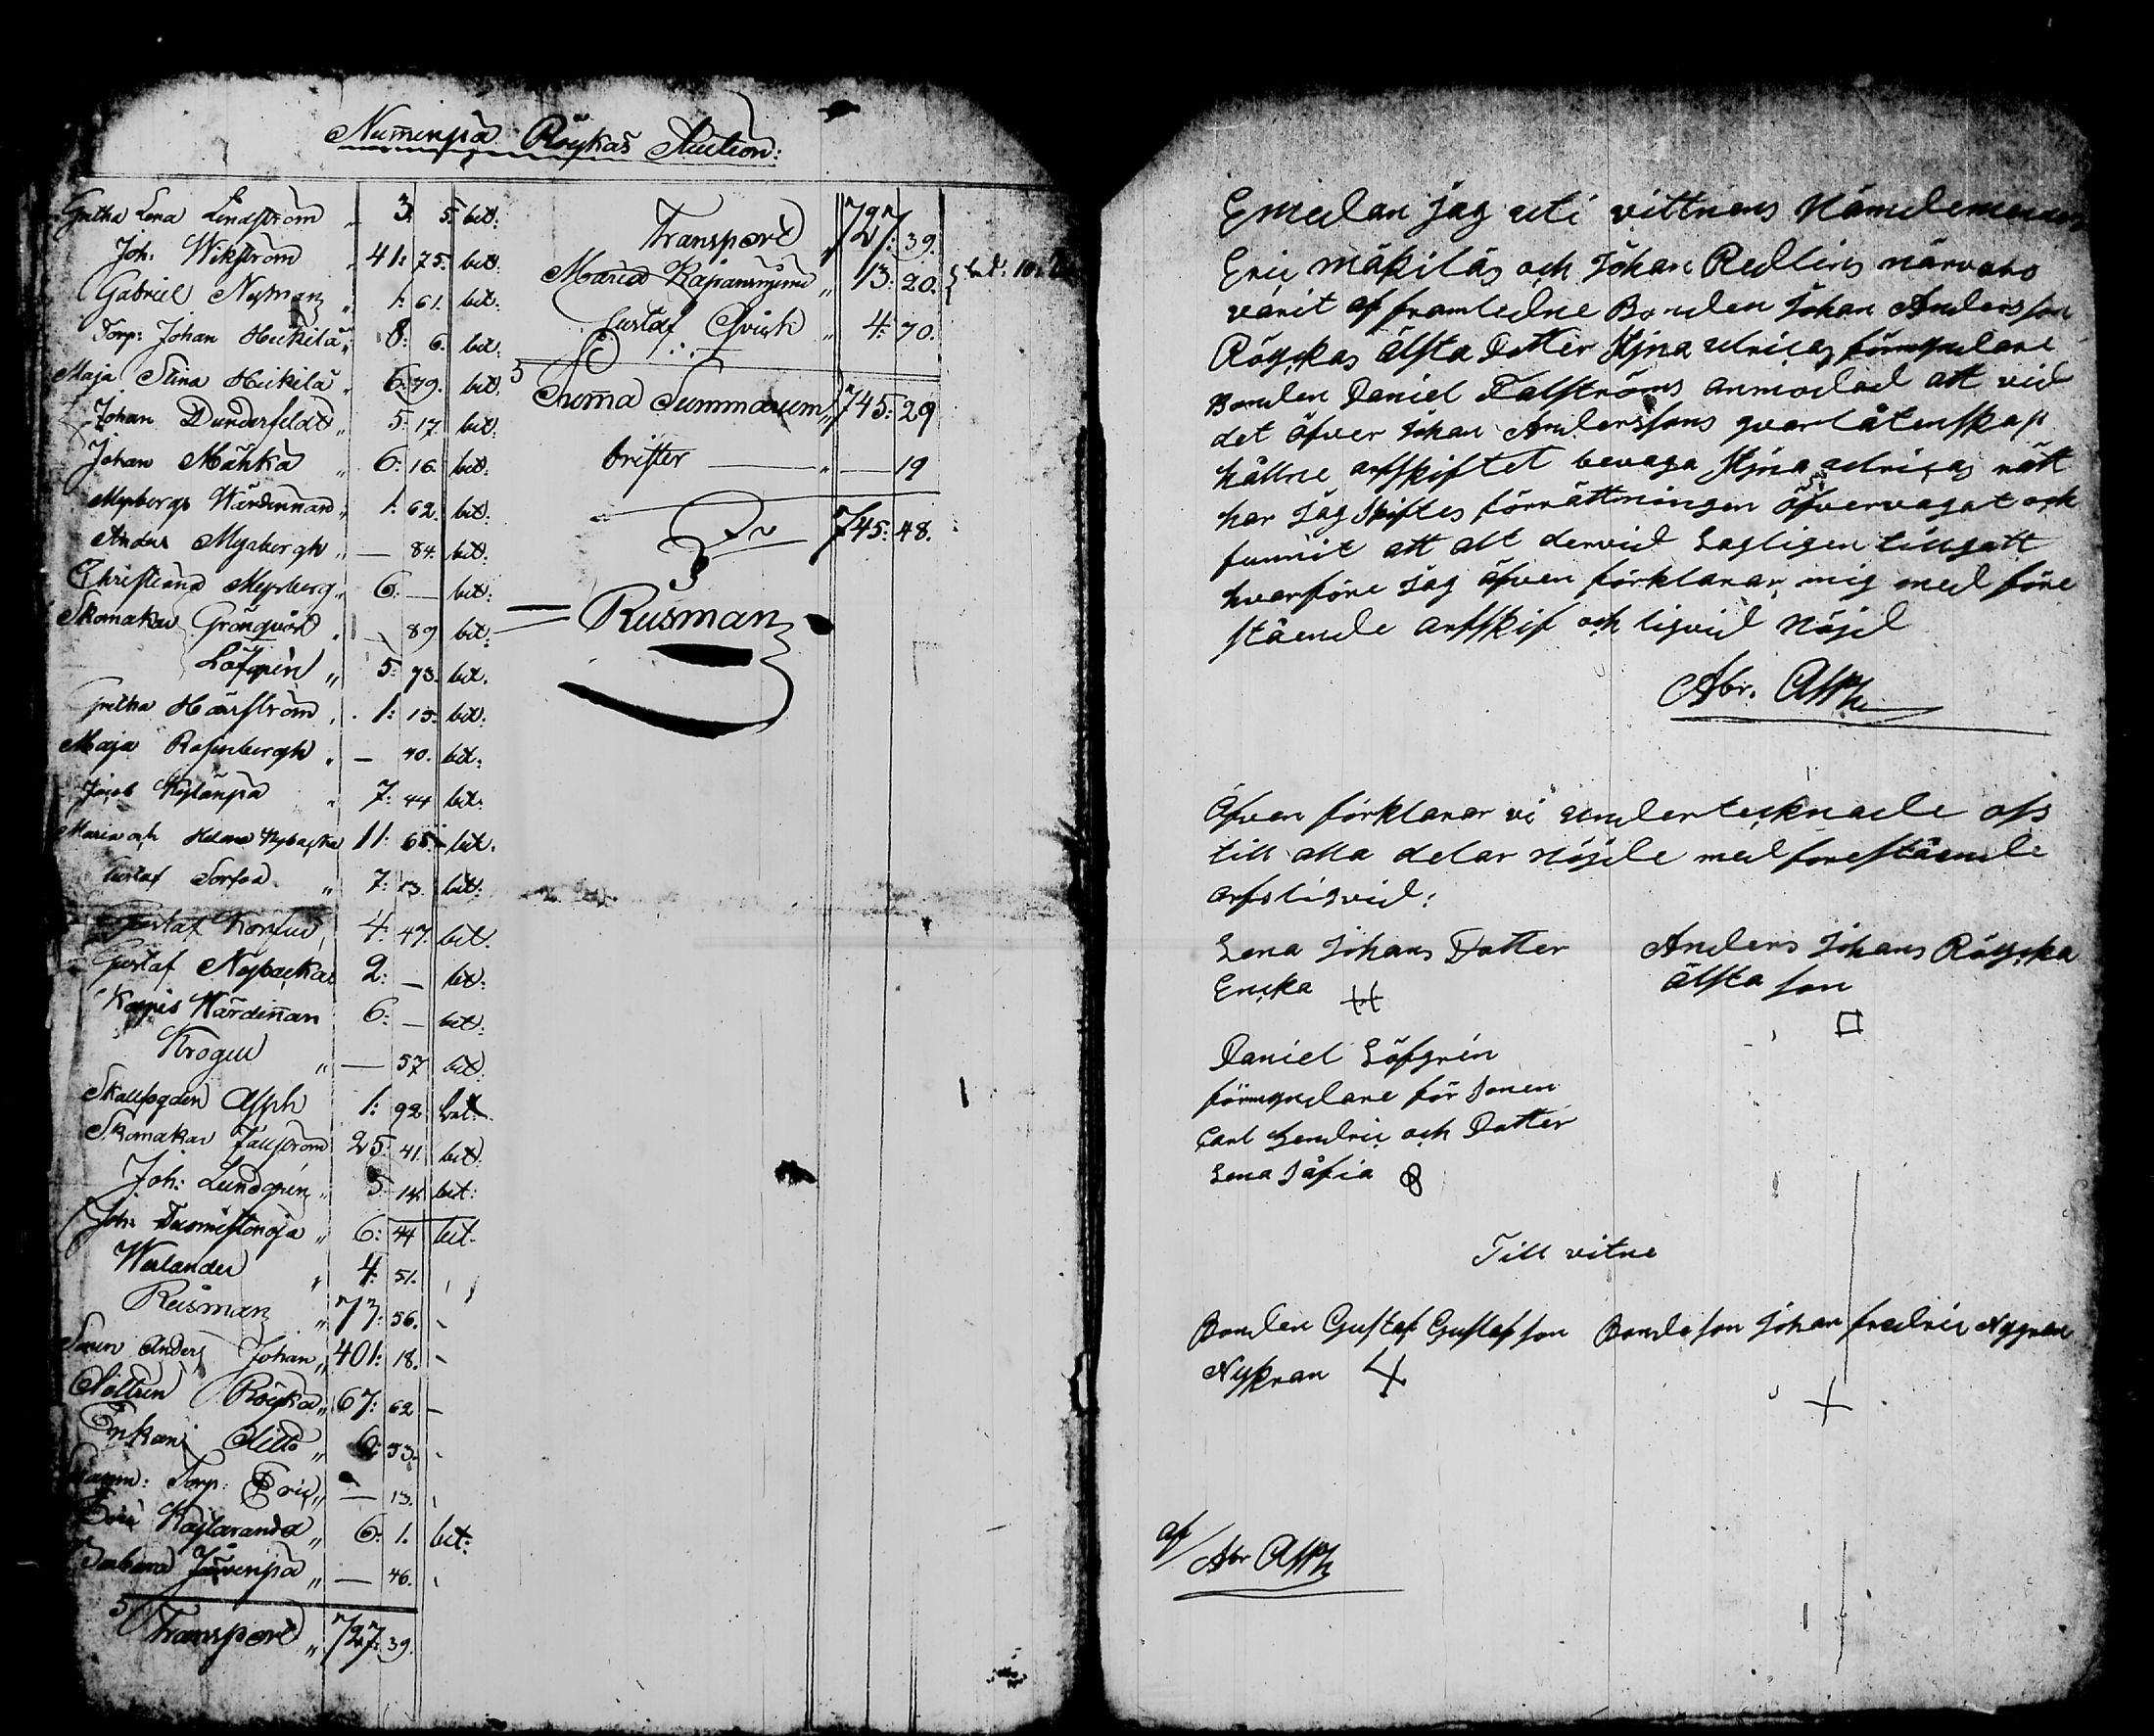 Numenpä Röykäs Auction:
Gretha Lena Lindström „ 3: 5. bet:
Joh: Wikström „ 41: 75. bet:
Gabriel Nyman „ 1: 61. bet:
Torp: Johan Heikilä „ 8: 6. bet:
Maja Stina Heikilä „ 6: 79. bet:
Johan Dunderfeldt „ 5: 17. bet:
Johan Mähkä „ 6: 16. bet:
Myrbergs Wärdinnan „ 1: 62. bet:
Anders Myrbergh „ — 84. bet:
Christiana Myrberg „ 6: — bet:
Skomakar Grönqvist „ — 89 bet:
Löfgrén „ 5: 73. bet.
Gretha Härström „ 1: 13: bet:
Maja Rosenbergh „ — 40. bet:
Jacob Kylänpä „ 7: 44 bet:
Maria och Helena Nybacka 11: 65. bet.
Gustaf Sorfva „ 7: 13. bet:
Gustaf 4: 47. bet.
Gustaf Nybackas 2: — bet:
Wärdinnan 6: — bet:
Krögell „ — 57 bet.
Skallfogden Asph 1: 92 bet:
Skomakar 25: 41. bet:
Joh: Lundgrén „ 5: 14. bet:
Joh: „ 6: 44 bet.
Werlander „ 4: 51.
Rusman „ 73: 56.
Sonen Anders Johan „ 401: 18.
Röyka „ 67: 62 —
Enkan Ditto „ 6: 53.
Torp: Eric „ — 13.
Eric Kyläranda „ 6: 1. bet:
Barbara Järvenpä „ — 46.
Transport „ 727: 39.
Transport „ 727: 39.
Maria „ 13: 20. } bet: 10:
Gustaf Qvist „ 4: 70.
Summa Summarum „ 745: 29
brister — „ — 19
745: 48.
Rusman
Emedan jag uti vittnens Nämdemannen
Eric Mäkiläs och Johan Redlins närvaro
varit af framledne Bonden Johan Andersson
Röyckas älsta Dotter Ulricas förmyndare
Bonden Daniel Falströms anmodad att vid
det öfver Johan Anderssons qvarlåtenskap
hållne arfskiftet bevaga Ulricas rätt
har jag skiftes förrättningen öfvervagat och
funnit att alt dervid Lagligen tillgått
hvarföre jag äfven förklarar mig med före
stående arfskif och liqvid Nöjd
Abr. Asph
Äfven förklarar vi undertecknade oss
till alla delar nöjde med forestående
arfsliqvid:
Lena Johans Dotter
Encka
Anders Johans Röycka
älsta son
Daniel Löfgrén
förmyndare för Sonen
Carl Hendric och Dotter
Lena Såfia
Till vitne
Bonden Gustaf Gustafsson
Nykran
Bondeson Johan fredric Nygran
af Abr Asph